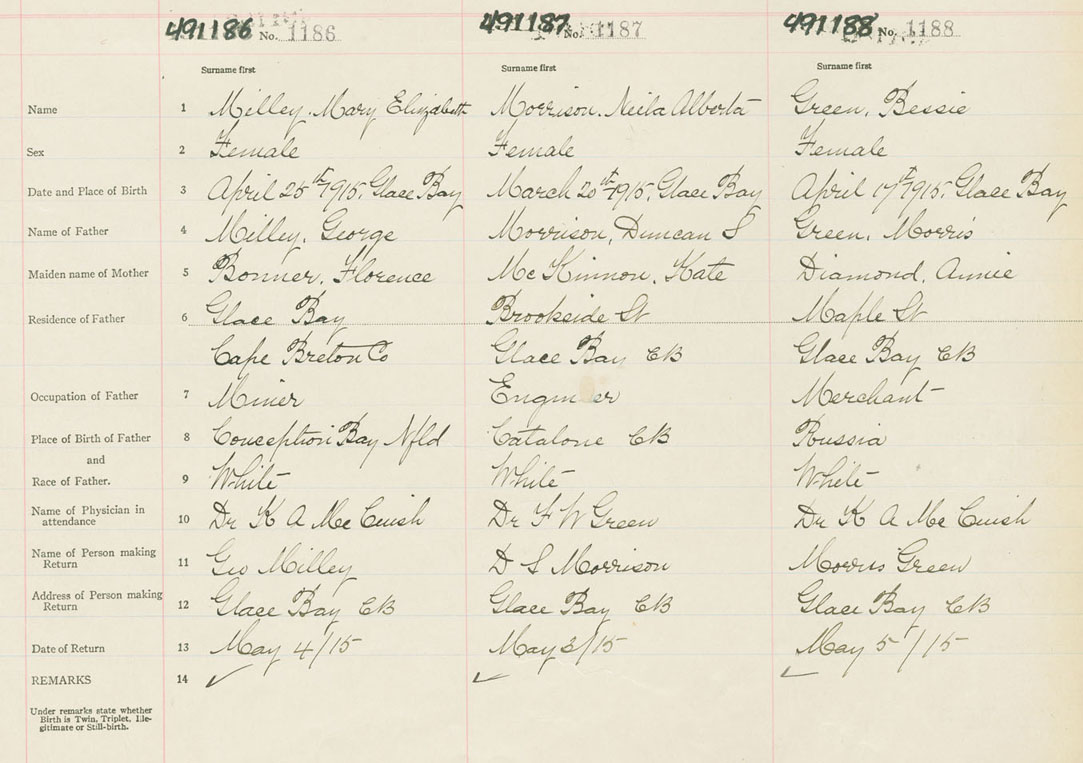 491186 No. 1186 491187 No. 1187 491188 No. 1188
Surname first Surname first Surname first
Name 1 Milley, Mary Elizabeth Morrison, Neila Alberta Green, Bessie
Sex 2 Female Female Female
Date and Place of Birth 3 April 25th 1915, Glace Bay March 20th 1915, Glace Bay April 1915, Glace Bay
Name of Father 4 Milley, George Morrison, Duncan S Green, Morris
Maiden name of Mother 5 Bonner, Florence Mc Kinnon, Kate Diamond, Annie
Residence of Father 6 Glace Bay Brookside St Maple St
Cape Breton Co Glace Bay CB Glace Bay CB
Occupation of Father 7 Miner Engineer Merchant
Place of Birth of Father 8 Conception Bay Nfld Catalone CB Russia
and
Race of Father. 9 White White White
Name of Physician in
attendance 10 Dr K A Mc Cuish Dr F W Green Dr K A Mc Cuish
Name of Person making
Return 11 Geo Milley D S Morrison Morris Green
Address of Person making
Return 12 Glace Bay CB Glace Bay CB Glace Bay CB
Date of Return 13 May 4/15 May 3/15 May 5/15
REMARKS 14
Under remarks state whether
Birth is Twin, Triplet, Ille-
gitimate or Still-birth.